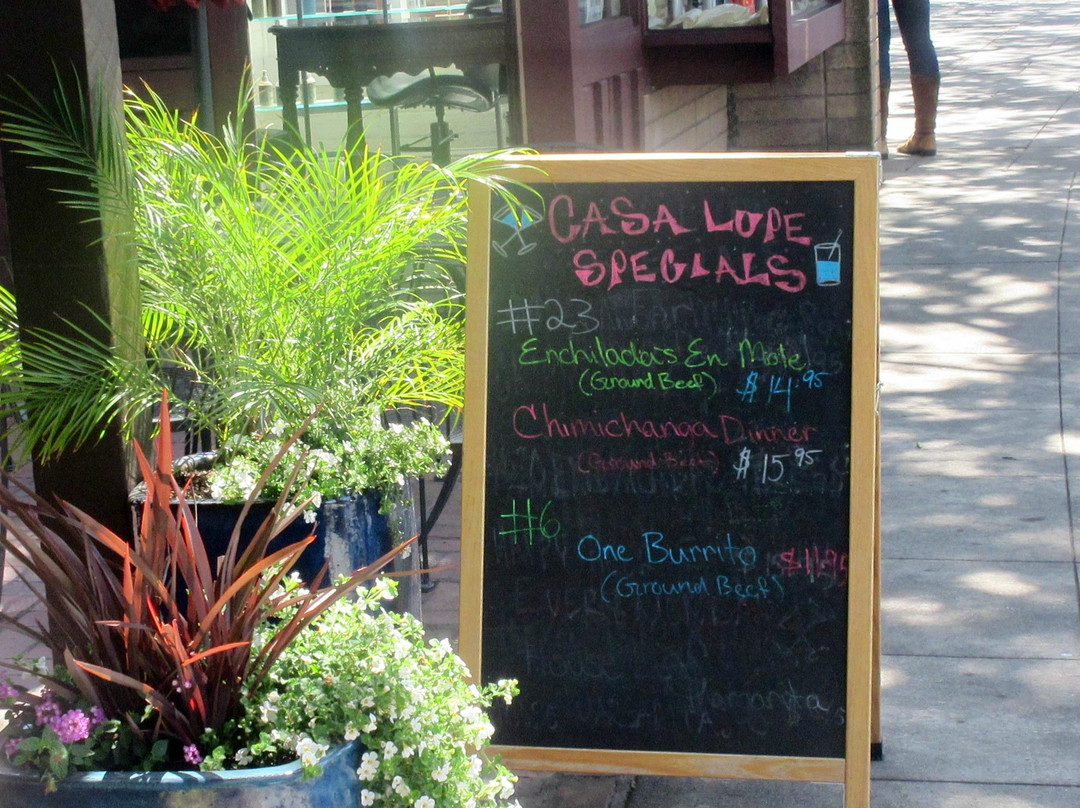 CASA LUPE
SPECIALS
#23
Enchiladas En Mole
(Ground Beef) $14.95
Chimichanga Dinner
(Ground Beef) $15.95
#6
One Burrito $11.95
(Ground Beef)